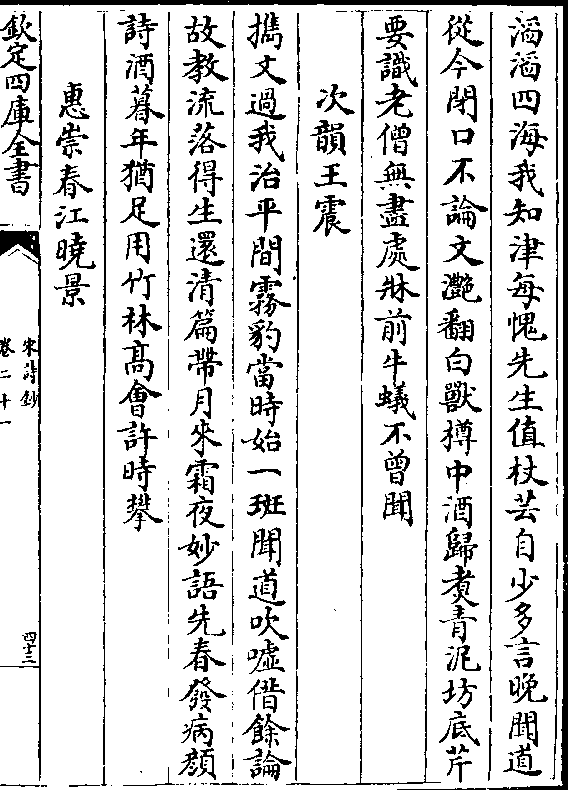 滔滔四海我知津每愧先生值杖芸自少多言晚聞道
從今閉口不論文灔翻白獸樽中酒歸煑青泥坊底芹
要識老僧無盡處牀前牛蟻不曾聞
次韻王震
攜文過我治平間霧豹當時始一班聞道吹噓借餘論
故教流落得生還清篇帶月來霜夜妙語先春發病顔
詩酒暮年猶足用竹林髙會許時攀
惠崇春江曉景
欽定四庫全書
宋詩鈔
卷二十一
四十三